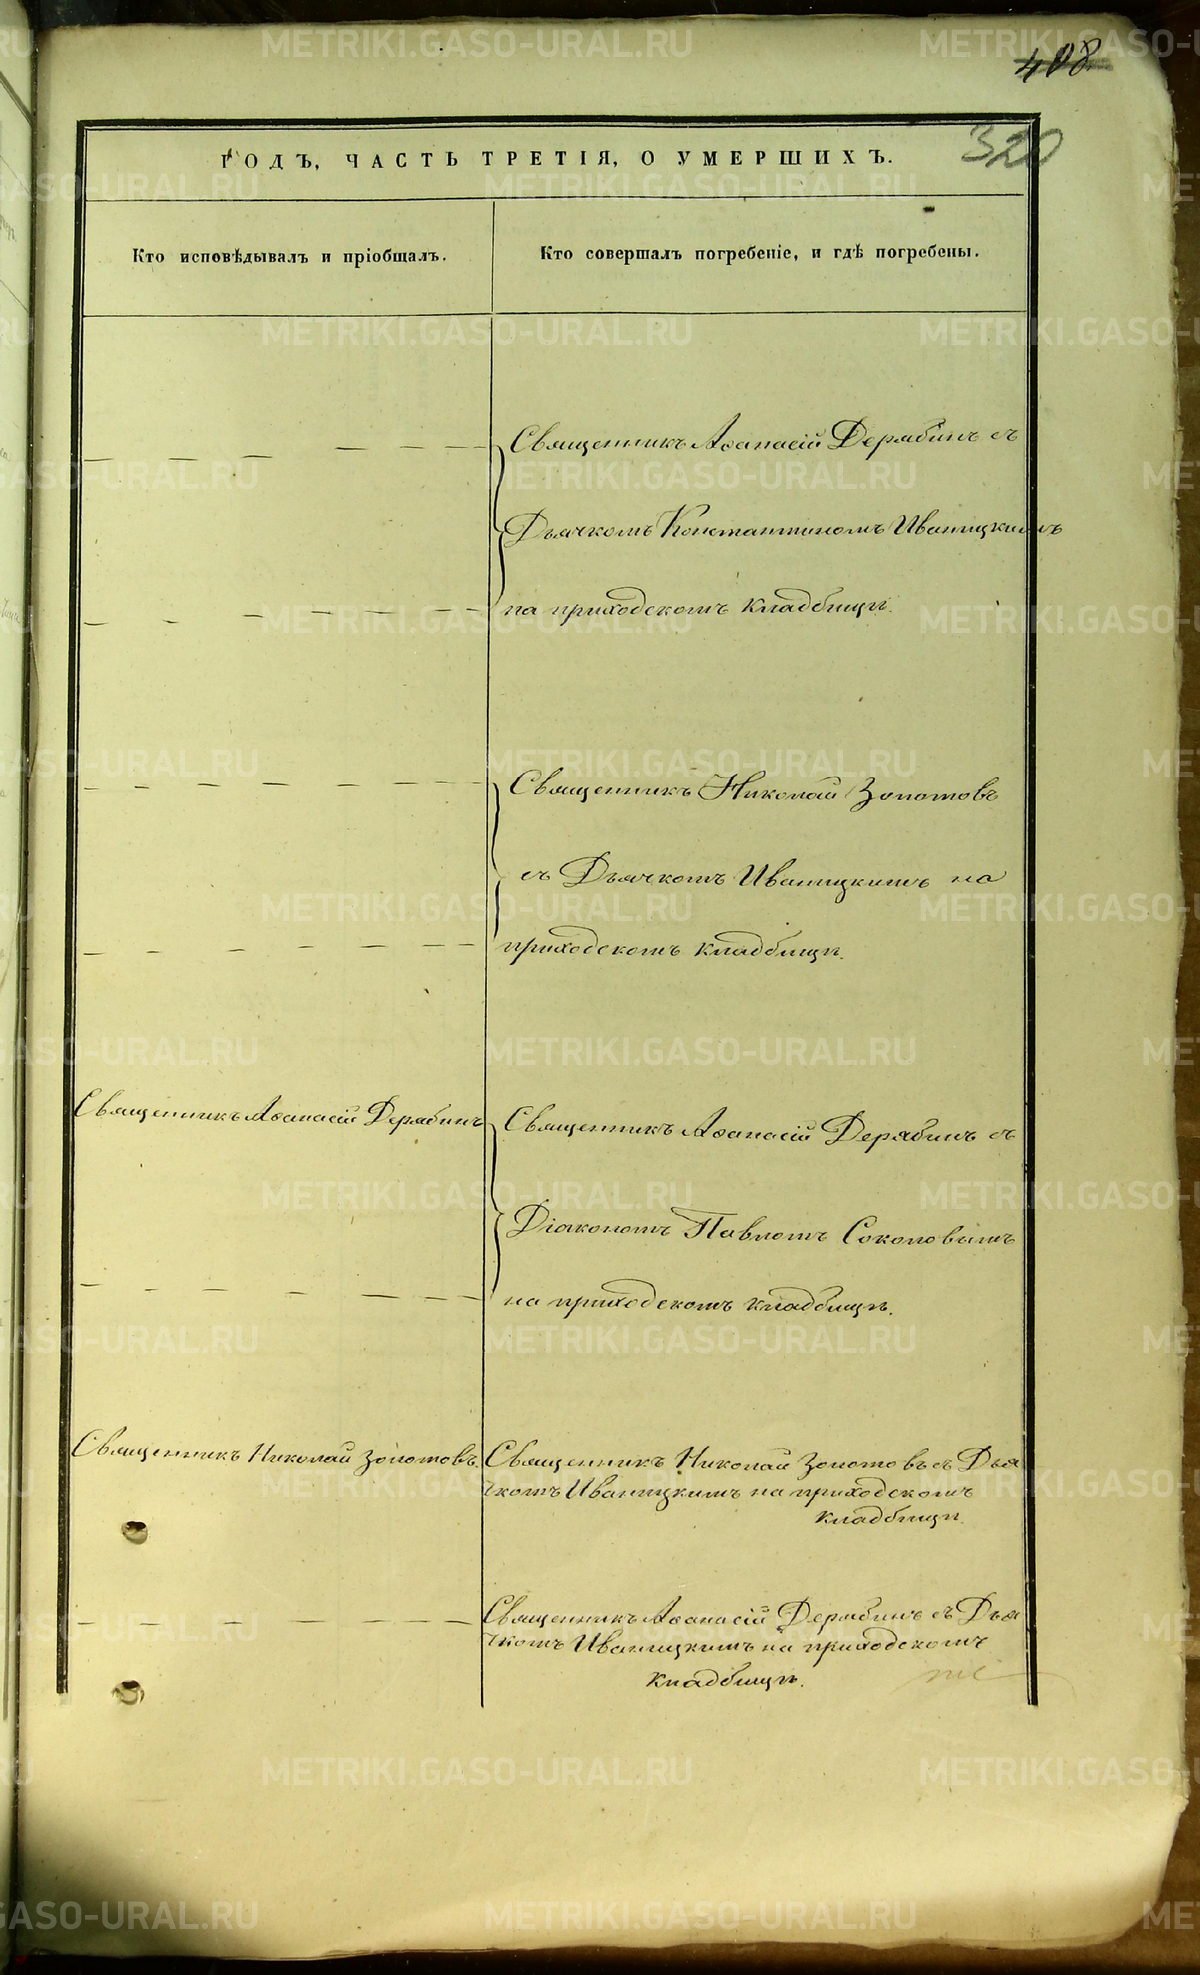 408
320
ГОДЪ, ЧАСТЬ ТРЕТІЯ, О УМЕРШИХЪ.
Кто исповѣдывалъ и пріобщалъ.
Кто совершалъ погребеніе, и гдѣ погребены.
Священникъ Аѳанасій Дерябинъ съ
Дьячкомъ Константиномъ Иваницкимъ
на приходскомъ кладбищѣ.
Священникъ Николай Золотовъ
съ Дьячкомъ Иваницкимъ на
приходскомъ кладбищѣ.
Священникъ Аѳанасій Дерябинъ
Священникъ Аѳанасій Дерябинъ съ
Діакономъ Павломъ Соколовымъ
на приходскомъ кладбищѣ.
Священникъ Николай Золотовъ.
Священникъ Николай Золотовъ съ Дья
чкомъ Иваницкимъ на приходскомъ
кладбищѣ.
Священникъ Аѳанасій Дерябинъ съ Дья
чкомъ Иваницкимъ на приходскомъ
кладбищѣ.
METRIKI.GASO-URAL.RU